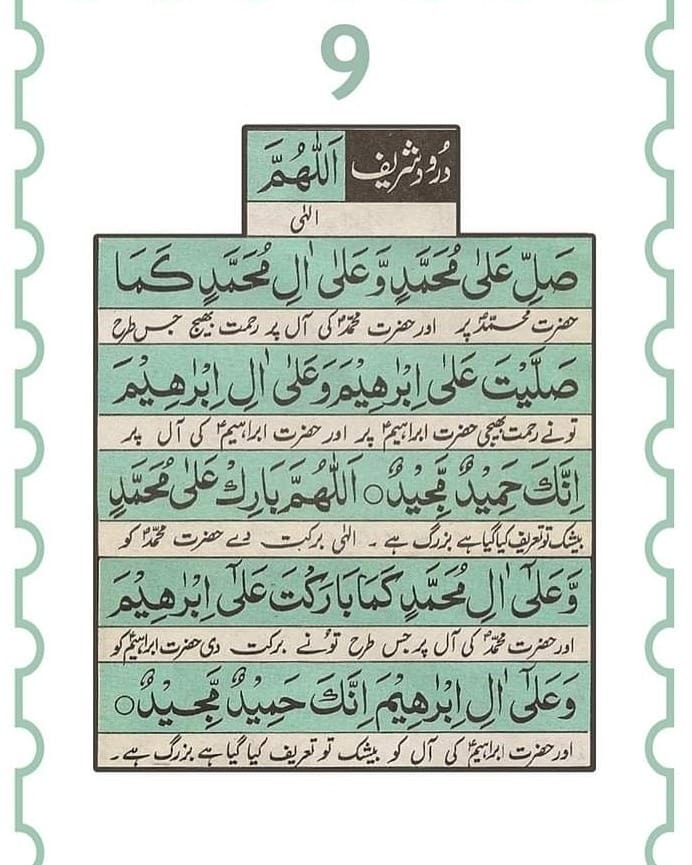 9
درود شریف اَللّٰهُمَّ
الٰہی
صَلِّ عَلٰى مُحَمَّدٍ وَّعَلٰٓى اٰلِ مُحَمَّدٍ كَمَا
حضرت محمدؐ پر اور حضرت محمدؐ کی آل پر رحمت بھیج جس طرح
صَلَّيْتَ عَلٰٓى اِبْرٰهِيْمَ وَعَلٰٓى اٰلِ اِبْرٰهِيْمَ
تونے رحمت بھیجی حضرت ابراہیمؑ پر اور حضرت ابراہیمؑ کی آل پر
اِنَّكَ حَمِيْدٌ مَّجِيْدٌ ○ اَللّٰهُمَّ بَارِكْ عَلٰى مُحَمَّدٍ
بیشک تو تعریف کیا گیا ہے بزرگ ہے ۔ الٰہی برکت دے حضرت محمدؐ کو
وَّعَلٰٓى اٰلِ مُحَمَّدٍ كَمَا بَارَكْتَ عَلٰٓى اِبْرٰهِيْمَ
اور حضرت محمدؐ کی آل پر جس طرح تونے برکت دی حضرت ابراہیمؑ کو
وَعَلٰٓى اٰلِ اِبْرٰهِيْمَ اِنَّكَ حَمِيْدٌ مَّجِيْدٌ ○
اور حضرت ابراہیمؑ کی آل کو بیشک تو تعریف کیا گیا ہے بزرگ ہے ۔